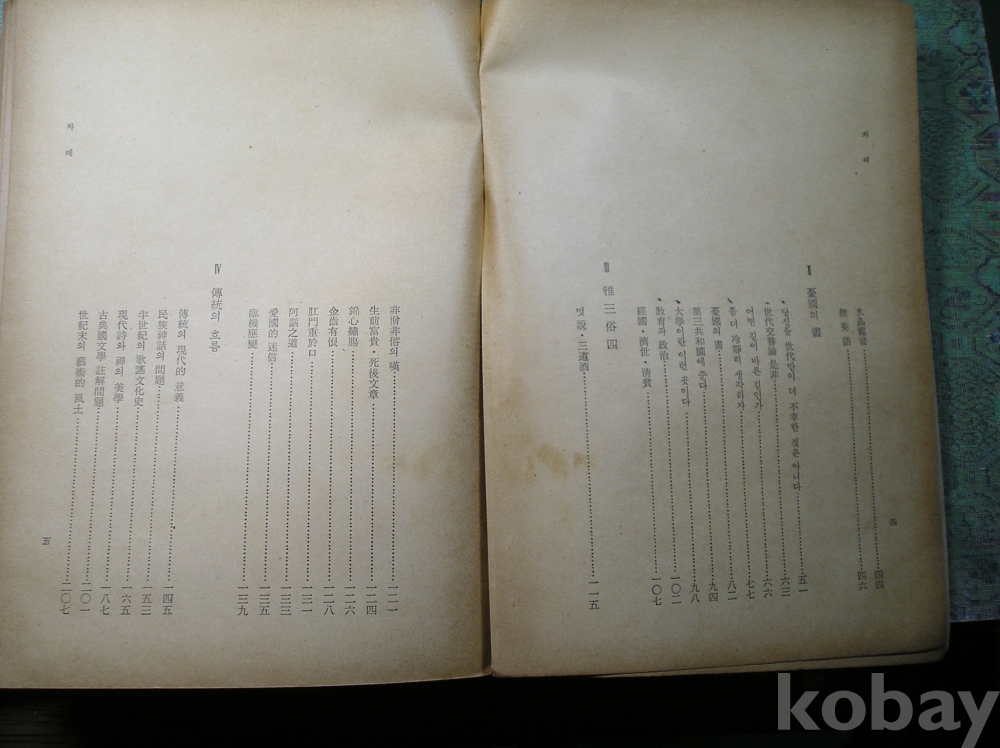 차 례
水晶觀音 四四
撫菊語 四六
Ⅱ 憂國의 書
당신들 世代만이 더 不幸한 것은 아니다 五一
世代交替論 是非 六三
어떤 길이 바른 길인가 六六
좀 더 冷靜히 생각하자 七七
憂國의 書 八二
第三共和國에 준다 九四
大學이란 이런 곳이다 九八
敎育과 政治 一〇二
經國·濟世·淸貧 一〇七
Ⅲ 雅三俗四
멋 說·三道酒 一一五
四
차 례
非僧非俗의 嘆 一二一
生前富貴·死後文章 一二四
錦心繡腸 一二六
金齒有恨 一二八
肛門重於口 一三一
阿諂之道 一三三
愛國的 迷信 一三五
臨機應變 一三九
Ⅳ 傳統의 흐름
傳統의 現代的 意義 一四五
民族神話의 問題 一五三
半世紀의 歌謠文化史 一六五
現代詩와 禪의 美學 一八七
古典國文學 註解問題 二〇一
世紀末의 藝術的 風土 二〇七
五
kobay